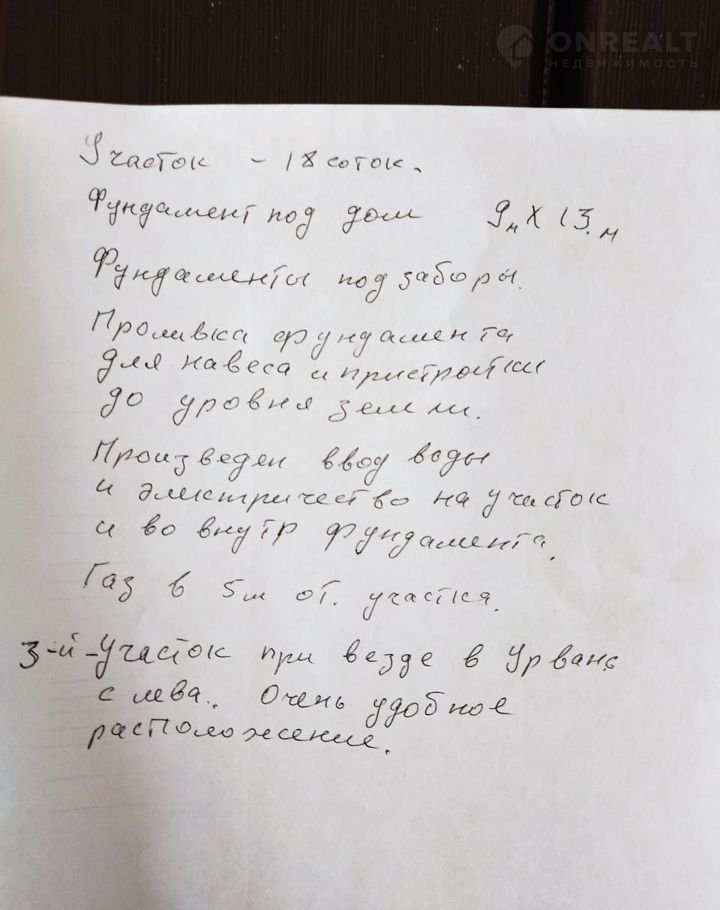 ONREALT
НЕДВИЖИМОСТЬ
Участок - 18 соток.
Фундамент под дом 9м х 13.м
Фундаменты под заборы.
Проливка фундамента
для навеса и пристройки
до уровня земли.
Произведен ввод воды
и электричество на участок
и во внутр фундамента.
Газ в 5м от. участка.
3-й-Участок при везде в Урвань
с лева.. Очень удобное
расположение.